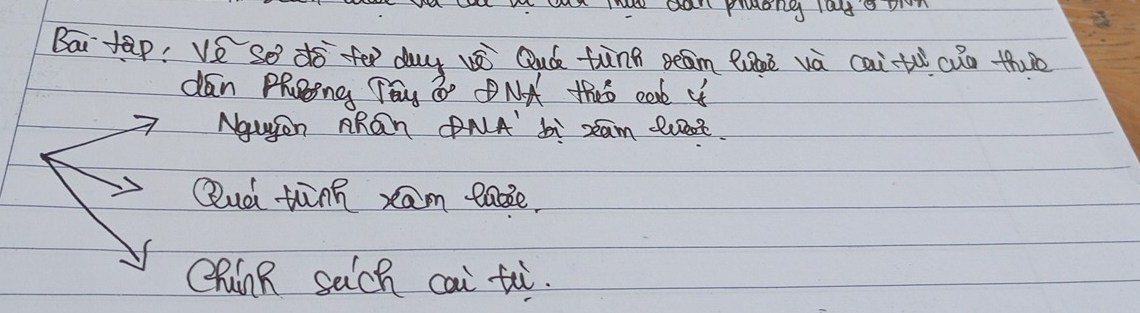 và cai trị của thực dân phương Tây ở ĐNA
Bài tập: Vẽ sơ đồ tư duy về Quá trình xâm lược và cai trị của thực
dân Phương Tây ở ĐNÁ theo các ý
Nguyên nhân ĐNÁ bị xâm lược.
Quá trình xâm lược.
Chính sách cai trị.